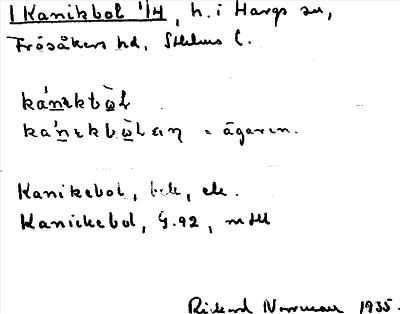 1 Kanikbol 1/4, h. i Hargs sn,
Frösåkers hd, Sthlms l.
ká̀nekbòl
ká̀nekbòlen = ägaren.
Kanikebol, bek, ek.
Kanickebol, G.92, mtl
Rickard Norrman 1935.